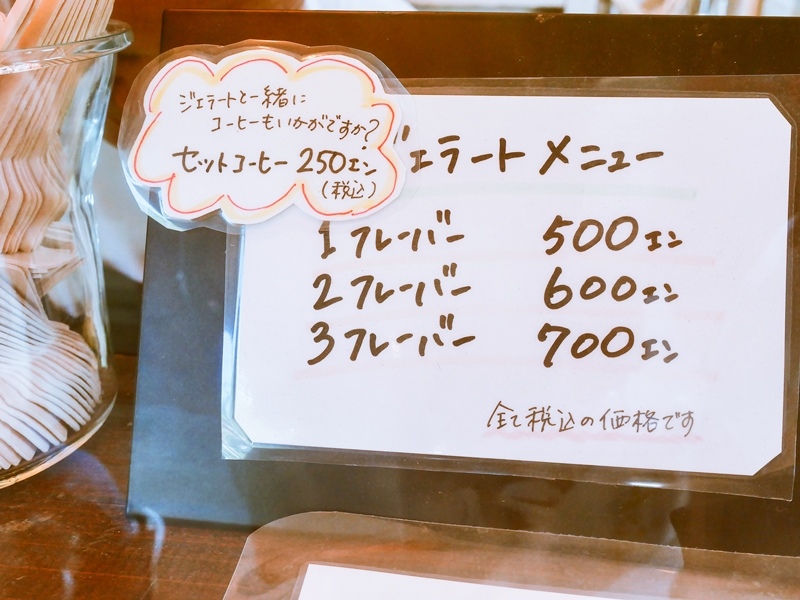 ジェラートと一緒に
コーヒーもいかがですか?
セットコーヒー 250エン
(税込)
ジェラート メニュー
1 フレーバー 500エン
2 フレーバー 600エン
3 フレーバー 700エン
全て税込の価格です